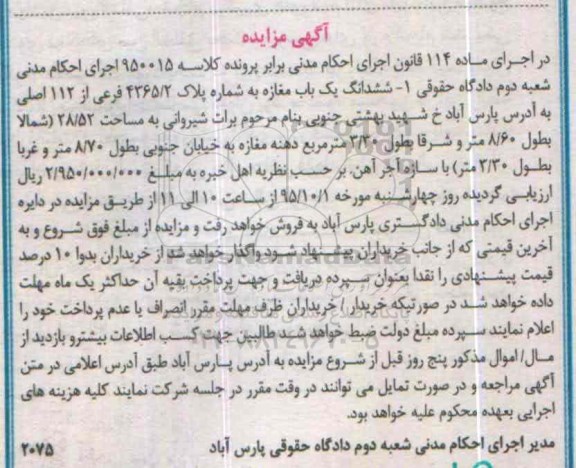 آگهی مزایده
در اجرای ماده ۱۱۴ قانون اجرای احکام مدنی برابر پرونده کلاسه ۹۵۰۰۱۵ اجرای احکام مدنی
شعبه دوم دادگاه حقوقی ۱- ششدانگ یک باب مغازه به شماره پلاک ۴۳۶۵/۲ فرعی از ۱۱۲ اصلی
به آدرس پارس آباد خ شهید بهشتی جنوبی بنام مرحوم برات شیروانی به مساحت ۲۸/۵۲ (شمالا
بطول ۸/۶۰ متر و شرقا بطول ۳/۳۰ مترمربع دهنه مغازه به خیابان جنوبی بطول ۸/۷۰ متر و غربا
بطول ۳/۳۰ متر) با سازه آجر آهن. بر حسب نظریه اهل خبره به مبلغ ۲/۹۵۰/۰۰۰/۰۰۰ ریال
ارزیابی گردیده روز چهارشنبه مورخه ۹۵/۱۰/۱ از ساعت ۱۰ الی ۱۱ از طریق مزایده در دایره
اجرای احکام مدنی دادگستری پارس آباد به فروش خواهد رفت و مزایده از مبلغ فوق شروع و به
آخرین قیمتی که از جانب خریداران پیشنهاد شود واگذار خواهد شد از خریداران بدوا ۱۰ درصد
قیمت پیشنهادی را نقدا بعنوان سپرده دریافت و جهت پرداخت بقیه آن حداکثر یک ماه مهلت
داده خواهد شد در صورتیکه خریدار / خریداران ظرف مهلت مقرر انصراف یا عدم پرداخت خود را
اعلام نمایند سپرده مبلغ دولت ضبط خواهد شد طالبین جهت کسب اطلاعات بیشترو بازدید از
مال/ اموال مذکور پنج روز قبل از شروع مزایده به آدرس پارس آباد طبق آدرس اعلامی در متن
آگهی مراجعه و در صورت تمایل می توانند در وقت مقرر در جلسه شرکت نمایند کلیه هزینه های
اجرایی بعهده محکوم علیه خواهد بود.
مدیر اجرای احکام مدنی شعبه دوم دادگاه حقوقی پارس آباد
۲۰۷۵